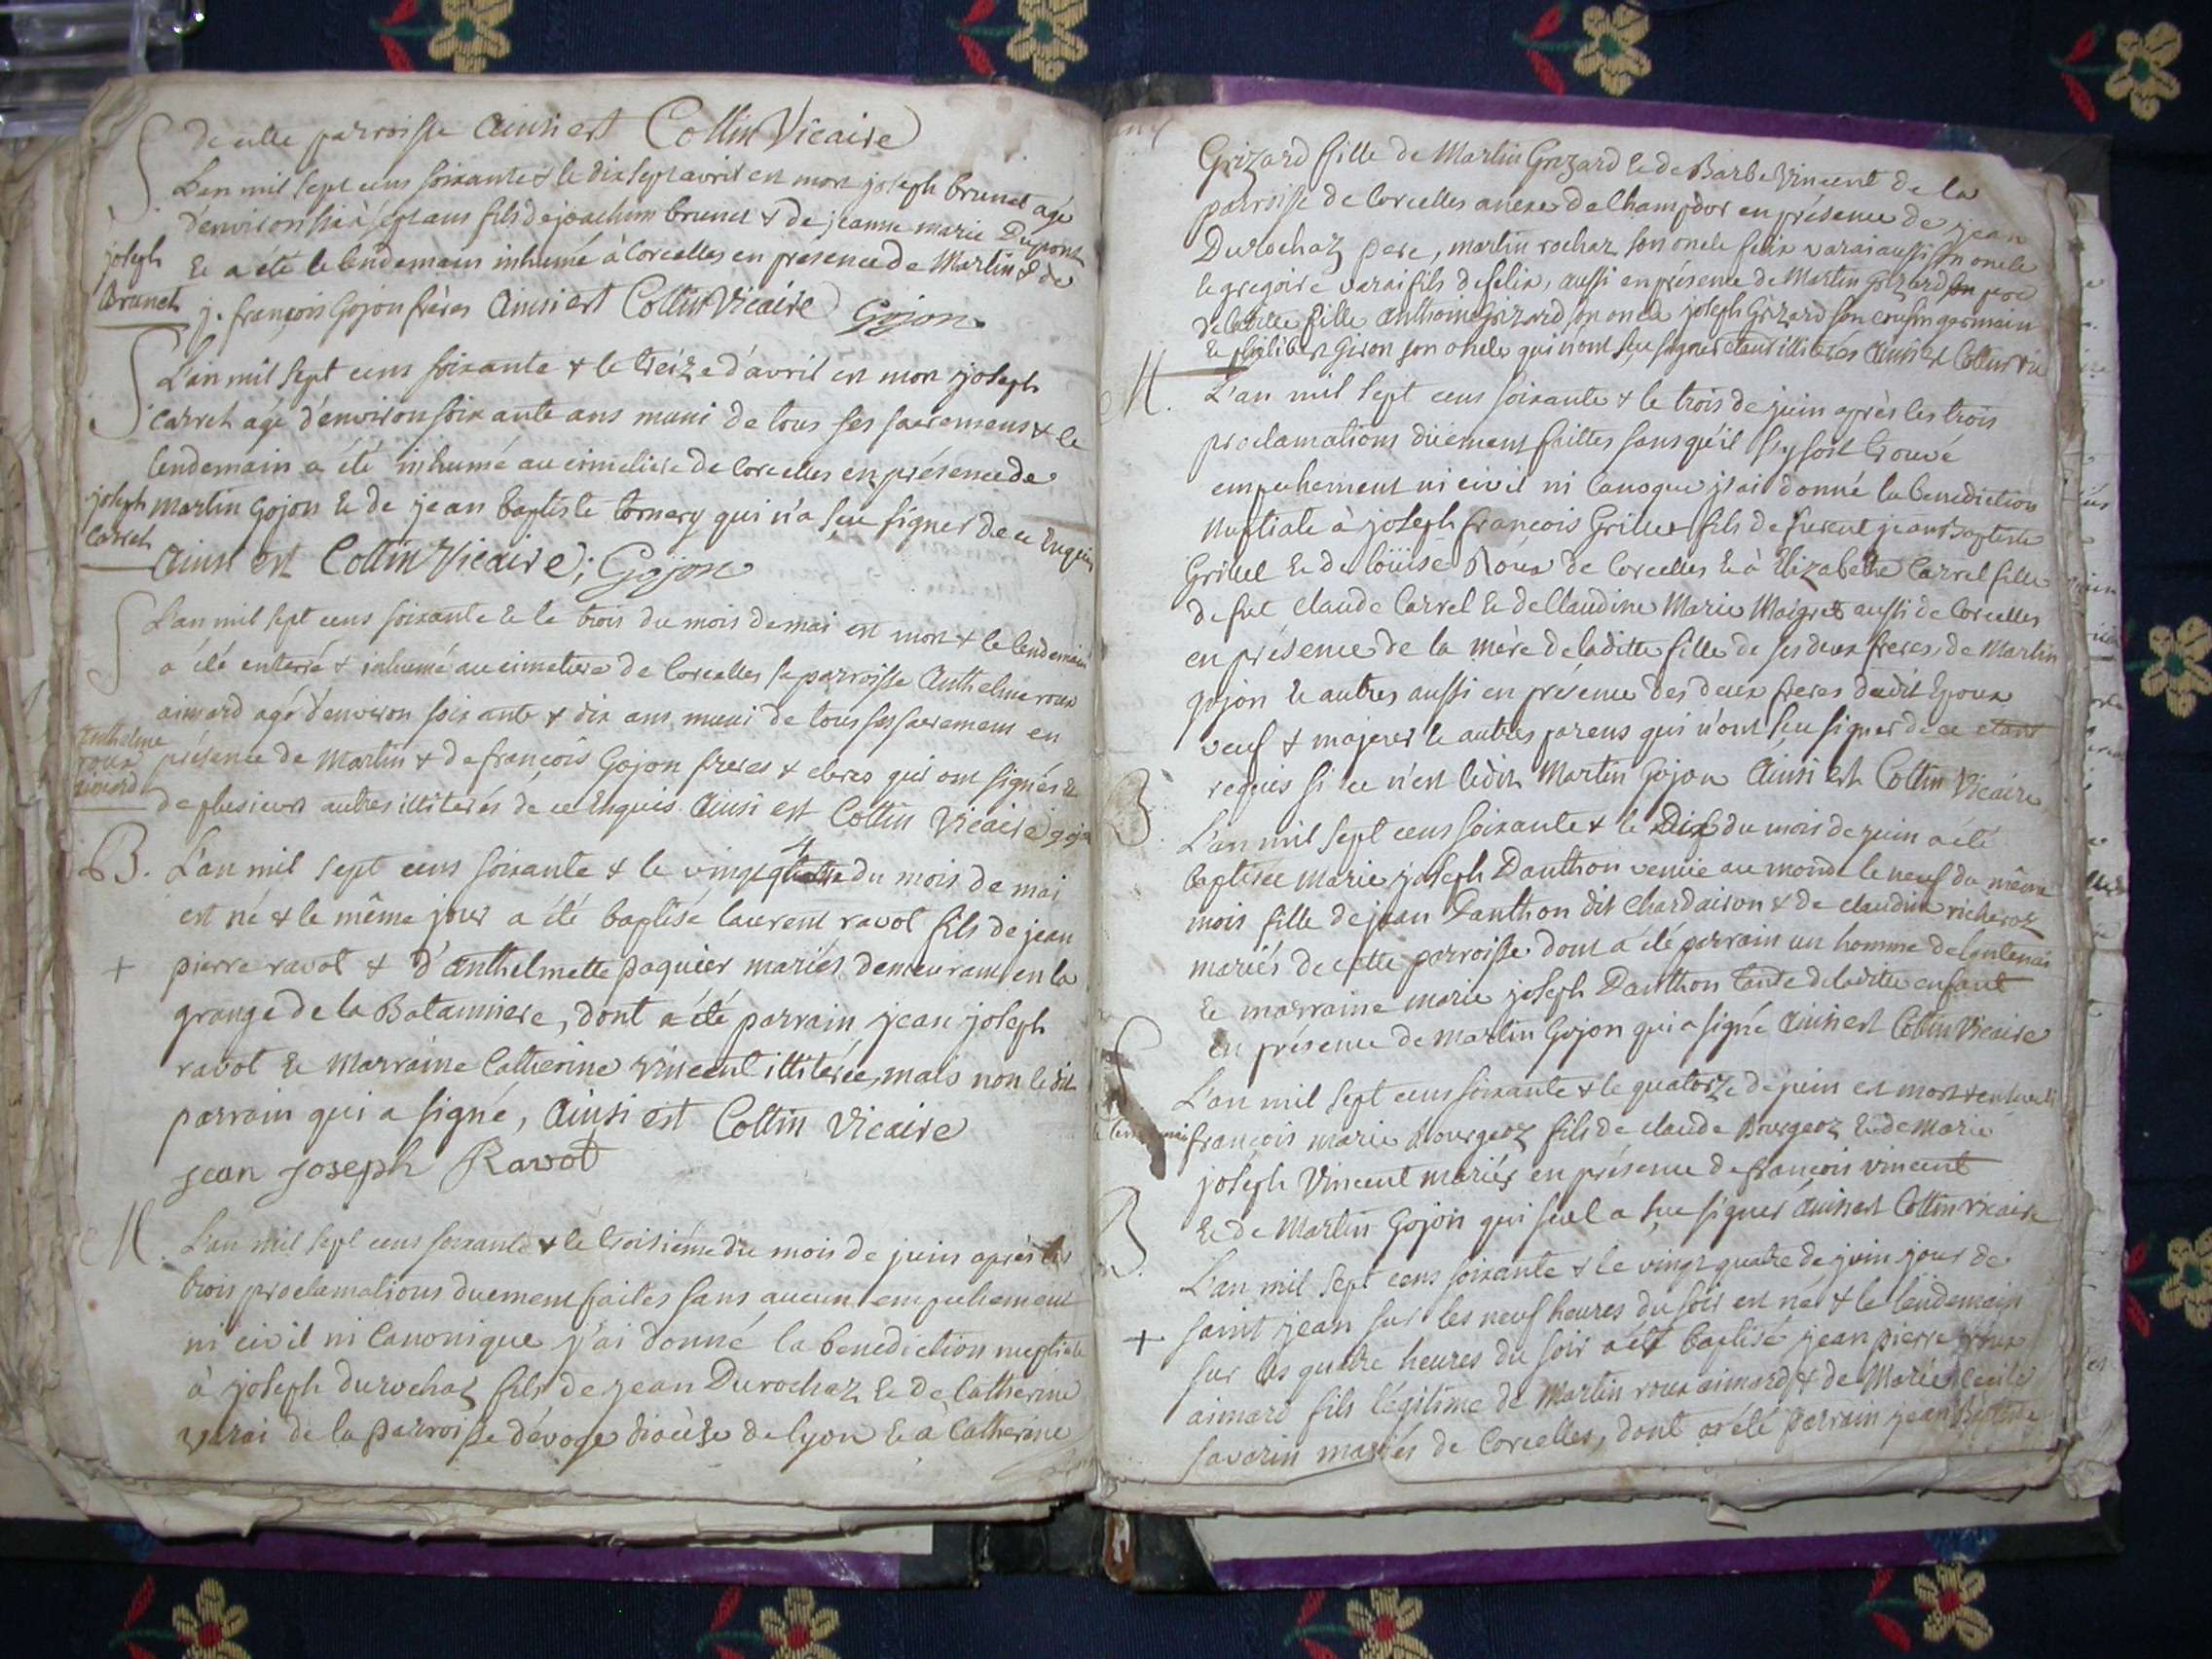 de cette parroisse Ainsi est Collin Vicaire
L'an mil sept cens soixante & le dix sept avril est mort joseph brunet agé
d'environ six à sept ans fils de joachim brunet & de jeanne marie Dupont
& a été le lendemain inhumé à Corcelles en presence de Martin & de
joseph
Brunet
j. françois Gojon frères Ainsi est Collin Vicaire Gojon
L'an mil sept cens soixante & le treize d'avril est mort joseph
Carret agé d'environ soixante ans muni de tous ses sacremens & le
lendemain a été inhumé au cimetiere de Corcelles en présence de
joseph
Carret
martin Gojon & de jean baptiste tornery qui n'a sçu signer de ce Enquis
Ainsi est Collin Vicaire; Gojon
L'an mil sept cens soixante & le trois du mois de mai est mort & le lendemain
a été enterré & inhumé au cimetiere de Corcelles sa parroisse Anthelme roux
aimard agé d'environ soixante & dix ans muni de tous ses sacremens en
anthelme
roux
aimard
présence de Martin & de françois Gojon freres & clercs qui ont signés &
de plusieurs autres illiterés de ce Enquis Ainsi est Collin Vicaire gojon
B. L'an mil sept cens soixante & le vingt quatre du mois de mai
est né & le même jour a été baptisé laurent ravot fils de jean
+ pierre ravot & d'anthelmette paquier mariés demeurans en la
grange de la Batanniere, dont a été parrain jean joseph
ravot & Marraine Catherine vincent illiterée, mais non ledit
parrain qui a signé, Ainsi est Collin Vicaire
jean joseph Ravot
M. L'an mil sept cens soixante & le troisième du mois de juin après les
trois proclamations duement faites sans aucun empechement
ni civil ni Canonique j'ai donné la benediction nuptiale
à joseph durochat fils de jean Durochaz & de Catherine
varai de la parroisse d'évoge diocèse de lyon & à Catherine
Grizard fille de Martin Grizard & de Barbe Vincent de la
parroisse de Corcelles anexe de Champdor en présence de jean
Durochaz pere, martin rochaz son oncle felix varai aussi son oncle
le gregoire varai fils de felix, aussi en présence de Martin Grizard son pere
de ladite fille anthoine Grizard son oncle joseph Grizard son cousin germain
& philibert Giron son oncle qui n'ont sçu signer étant illiterés Ainsi est Collin vic
M. L'an mil sept cens soixante & le trois de juin après les trois
proclamations düement faittes sans qu'il s'y soit trouvé
empechement ni civil ni canoque j'ai donné la benediction
nuptiale à joseph françois Grillet fils de furent jean Baptiste
Grillet & de loüise Roux de Corcelles & à Elizabethe Carrel fille
de fut claude Carrel & de Claudine Marie Maigret aussi de Corcelles
en présence de la mère de laditte fille de ses deux freres, de Martin
gojon & autres aussi en présence des deux freres dudit Epoux
veuf & majeur & autres parens qui n'ont sçu signer de ce etant
requis si ce n'est ledit Martin Gojon Ainsi est Collin Vicaire
B. L'an mil sept cens soixante & le Dix du mois de juin a été
baptisée marie joseph Danthon venüe au monde le neuf du même
mois fille de jean Danthon dit chardairon & de claudine richeroz
mariés de cette parroisse dont a été parrain un homme de
& marraine marie joseph Danthon tante de laditte enfant
en présence de martin Gojon qui a signé Ainsi est Collin Vicaire
L'an mil sept cens soixante & le quatorze de juin est mort & enseveli
françois marie Bourgeoz fils de claude Bourgeoz & de marie
joseph Vincent mariés en présence de françois vincent
& de Martin Gojon qui seul a sçu signer Ainsi est Collin vicaire
B. L'an mil sept cens soixante & le vingt quatre de juin jour de
saint jean sur les neuf heures du soir est né & le lendemain
+ sur les quatre heures du soir a été baptisé jean pierre roux
aimard fils légitime de Martin roux aimard & de Marie Cecile
savarin mariés de Corcelles, dont a été parrain jean Baptiste